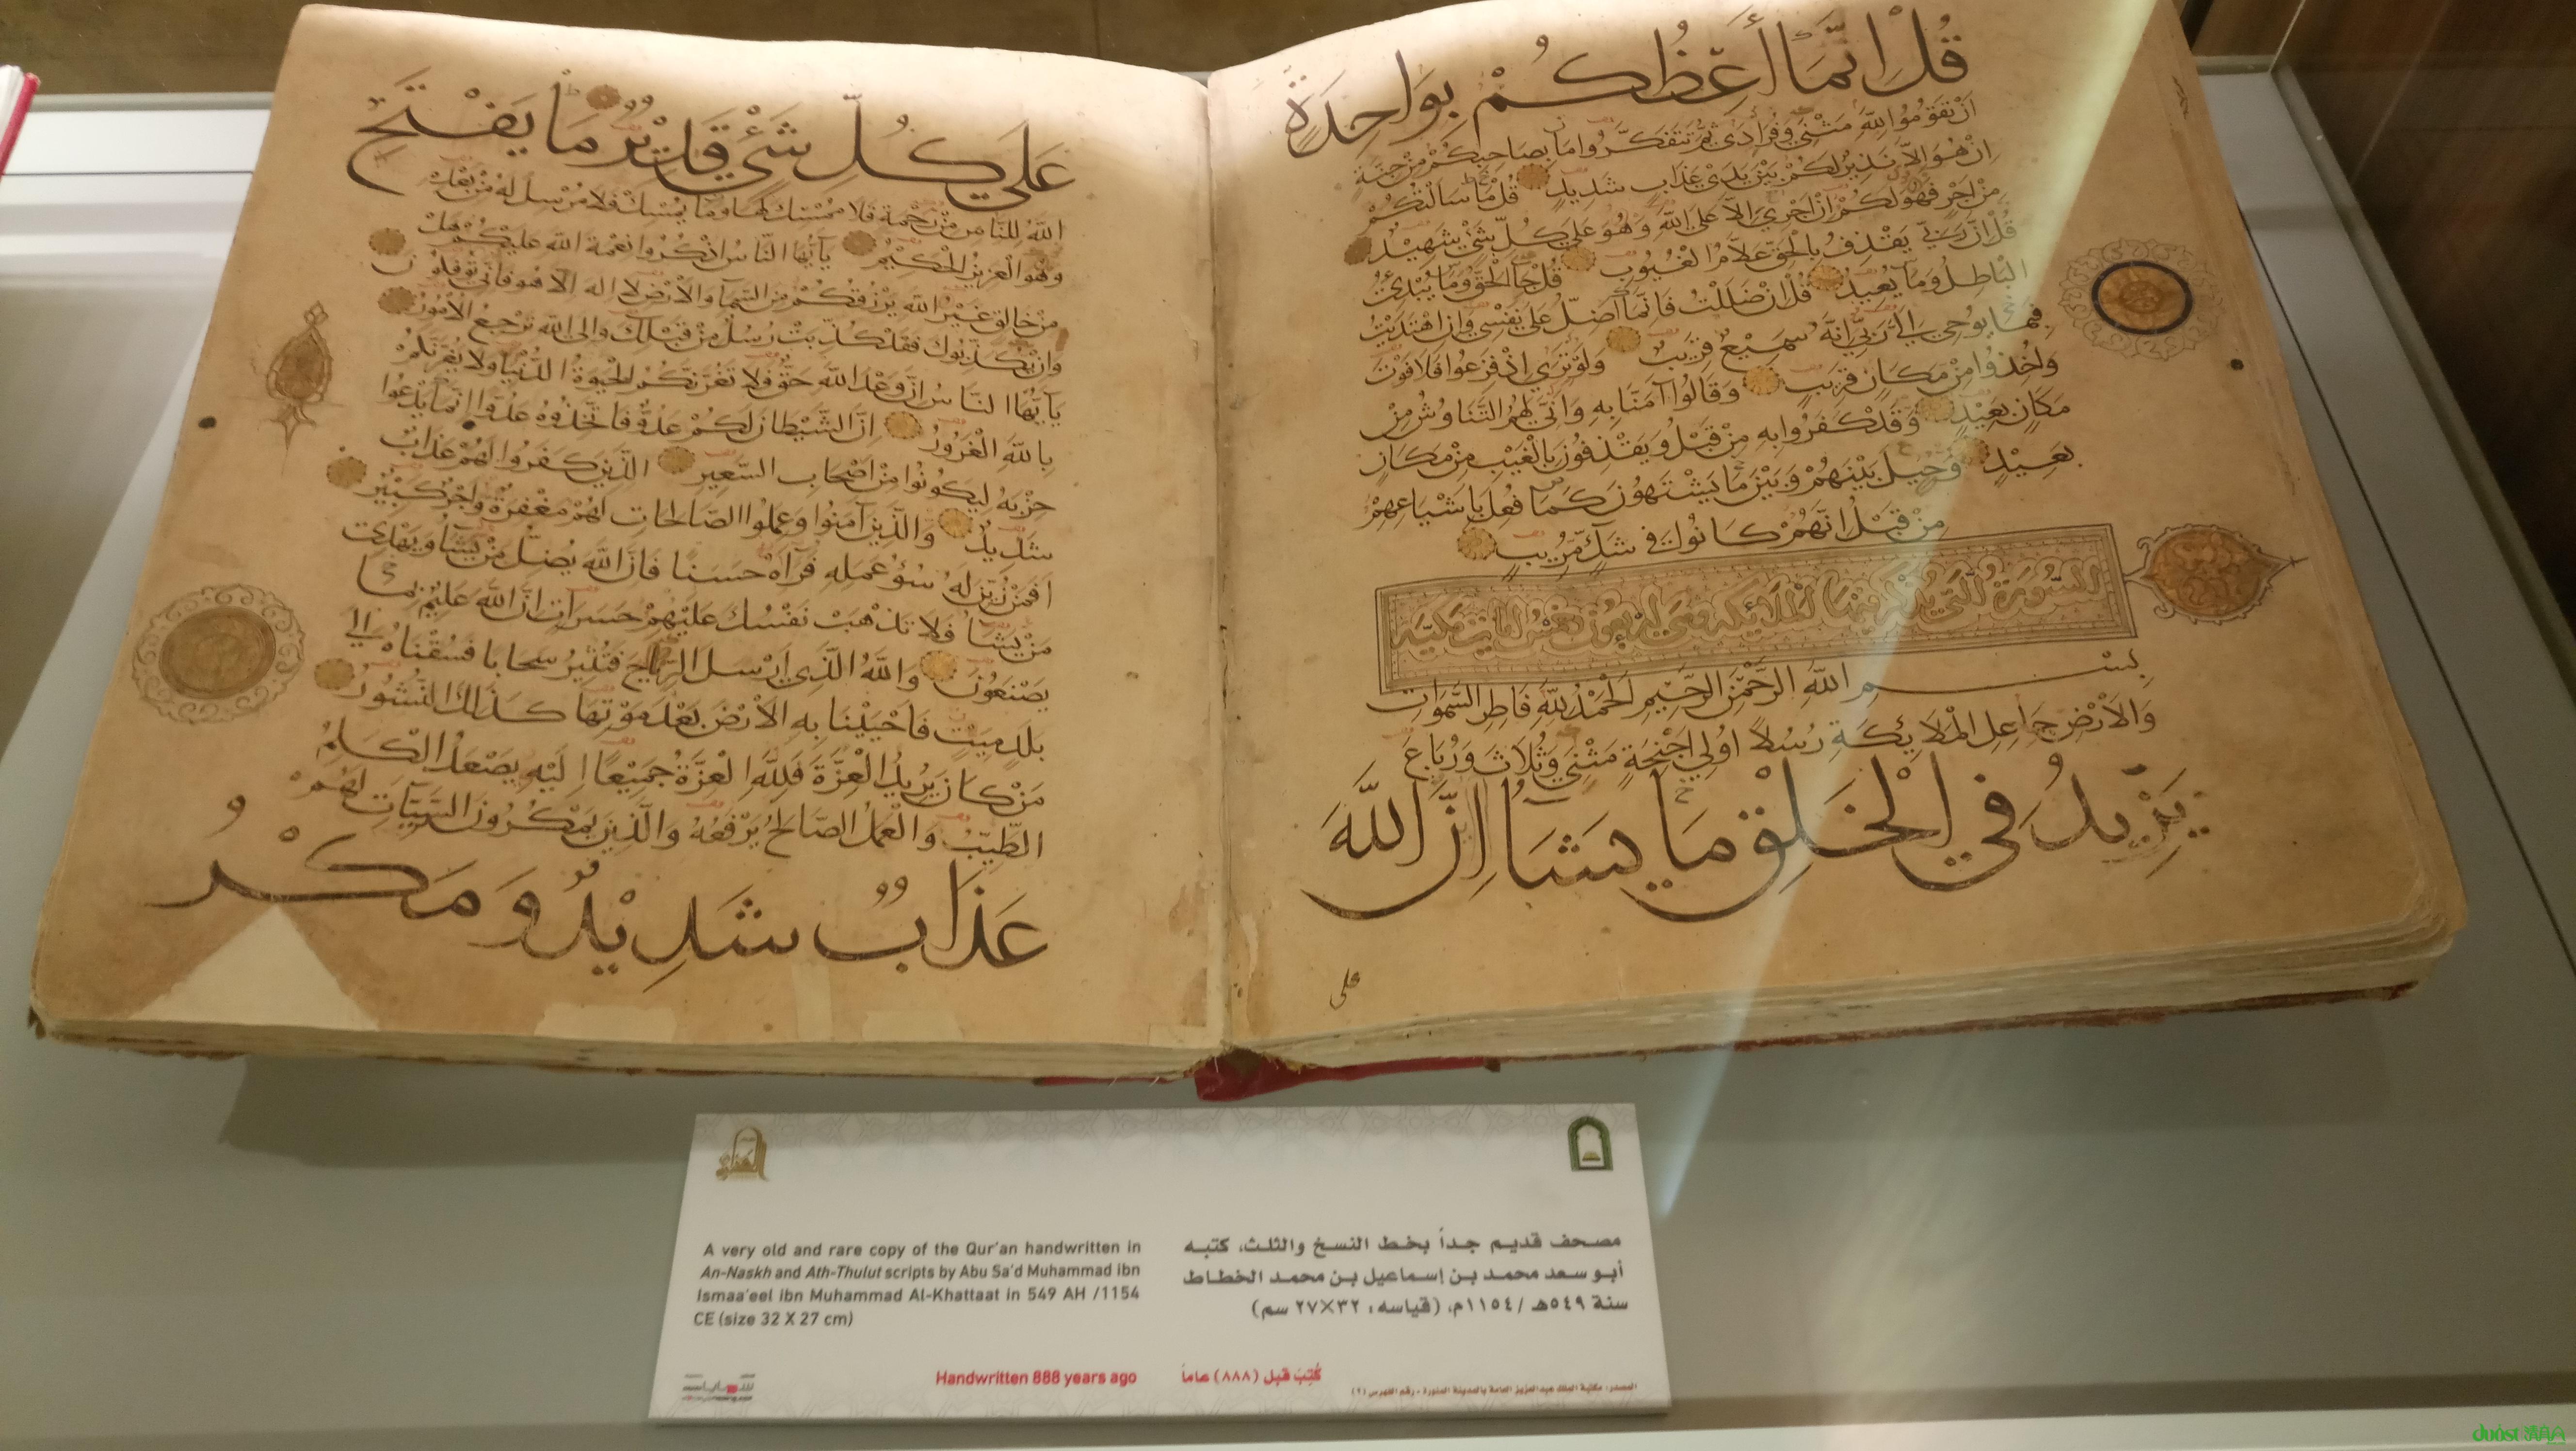 قُلْ اِنَّمَا أَعِظُكُمْ بِوَاحِدَةٍ
اَنْ تَقُومُوا لِلّٰهِ مَثْنَى وَفُرَادَى ثُمَّ تَتَفَكَّرُوا مَا بِصَاحِبِكُمْ مِنْ جِنَّةٍ
اِنْ هُوَ اِلاَّ نَذِيرٌ لَكُمْ بَيْنَ يَدَيْ عَذَابٍ شَدِيدٍ قُلْ مَا سَالْتُكُمْ
مِنْ اَجْرٍ فَهُوَ لَكُمْ اِنْ اَجْرِيَ اِلاَّ عَلَى اللّٰهِ وَهُوَ عَلَى كُلِّ شَيْءٍ شَهِيْدٌ
قُلْ اِنَّ رَبِّي يَقْذِفُ بِالْحَقِّ عَلاَّمُ الْغُيُوبِ قُلْ جَآ الْحَقُّ وَمَا يُبْدِئُ
الْبَاطِلُ وَمَا يُعِيْدُ قُلْ اِنْ ضَلَلْتُ فَاِنَّمَآ اَضِلُّ عَلَى نَفْسِي وَاِنِ اهْتَدَيْتُ
فَبِمَا يُوحِي اِلَيَّ رَبِّي اِنَّهُ سَمِيْعٌ قَرِيْبٌ وَلَوْ تَرَى اِذْ فَزِعُوا فَلاَ فَوْتَ
وَاُخِذُوا مِنْ مَكَانٍ قَرِيْبٍ وَقَالُوا آمَنَّا بِهِ وَاَنَّى لَهُمُ التَّنَاوُشُ مِنْ
مَكَانٍ بَعِيْدٍ وَقَدْ كَفَرُوا بِهِ مِنْ قَبْلُ وَيَقْذِفُوْنَ بِالْغَيْبِ مِنْ مَكَانٍ
بَعِيْدٍ وَحِيْلَ بَيْنَهُمْ وَبَيْنَ مَا يَشْتَهُوْنَ كَمَا فُعِلَ بِاَشْيَاعِهِمْ
مِنْ قَبْلُ اِنَّهُمْ كَانُوا فِي شَكٍّ مُرِيْبٍ
السُّورَةُ الَّتِي يُذْكَرُ فِيْهَا الْمَلاَئِكَةُ وَهِيَ اَرْبَعُوْنَ وَخَمْسُ اٰيَاتٍ مَكِّيَّة
بِسْمِ اللّٰهِ الرَّحْمٰنِ الرَّحِيْمِ اَلْحَمْدُ لِلّٰهِ فَاطِرِ السَّمَوَاتِ
وَالاَرْضِ جَاعِلِ الْمَلاَيِكَةِ رُسُلاً اُولِي اَجْنِحَةٍ مَثْنَى وَثُلاَثَ وَرُبَاعَ
يَزِيْدُ فِي الْخَلْقِ مَا يَشَآ اِنَّ اللّٰهَ
على
عَلَى كُلِّ شَيْءٍ قَدِيْرٌ مَا يَفْتَحِ
اللّٰهُ لِلنَّاسِ مِنْ رَحْمَةٍ فَلاَ مُمْسِكَ لَهَا وَمَا يُمْسِكْ فَلاَ مُرْسِلَ لَهُ مِنْ بَعْدِهِ
وَهُوَ الْعَزِيزُ الْحَكِيْمُ يَآ اَيُّهَا النَّاسُ اذْكُرُوا نِعْمَةَ اللّٰهِ عَلَيْكُمْ هَلْ
مِنْ خَالِقٍ غَيْرُ اللّٰهِ يَرْزُقُكُمْ مِنَ السَّمَآ وَالاَرْضِ لاَ اِلَهَ اِلاَّ هُوَ فَاَنَّى تُؤْفَكُوْنَ
وَاِنْ يُكَذِّبُوكَ فَقَدْ كُذِّبَتْ رُسُلٌ مِنْ قَبْلِكَ وَاِلَى اللّٰهِ تُرْجَعُ الاُمُوْرُ
يَآ اَيُّهَا النَّاسُ اِنَّ وَعْدَ اللّٰهِ حَقٌّ فَلاَ تَغُرَّنَّكُمُ الْحَيَوةُ الدُّنْيَا وَلاَ يَغُرَّنَّكُمْ
بِاللّٰهِ الْغَرُوْرُ اِنَّ الشَّيْطَانَ لَكُمْ عَدُوٌّ فَاتَّخِذُوهُ عَدُوًّا اِنَّمَا يَدْعُوا
حِزْبَهُ لِيَكُونُوا مِنْ اَصْحَابِ السَّعِيْرِ الَّذِيْنَ كَفَرُوا لَهُمْ عَذَابٌ
شَدِيْدٌ وَالَّذِيْنَ آمَنُوا وَعَمِلُوا الصَّالِحَاتِ لَهُمْ مَغْفِرَةٌ وَاَجْرٌ كَبِيْرٌ
اَفَمَنْ زُيِّنَ لَهُ سُوْءُ عَمَلِهِ فَرَآهُ حَسَنًا فَاِنَّ اللّٰهَ يُضِلُّ مَنْ يَشَآ وَيَهْدِي
مَنْ يَشَآ فَلاَ تَذْهَبْ نَفْسُكَ عَلَيْهِمْ حَسَرَاتٍ اِنَّ اللّٰهَ عَلِيْمٌ بِمَا
يَصْنَعُوْنَ وَاللّٰهُ الَّذِي اَرْسَلَ الرِّيَاحَ فَتُثِيْرُ سَحَابًا فَسُقْنَاهُ اِلَى
بَلَدٍ مَيِّتٍ فَاَحْيَيْنَا بِهِ الاَرْضَ بَعْدَ مَوْتِهَا كَذَلِكَ النُّشُوْرُ
مَنْ كَانَ يُرِيْدُ الْعِزَّةَ فَلِلّٰهِ الْعِزَّةُ جَمِيْعًا اِلَيْهِ يَصْعَدُ الْكَلِمُ
الطَّيِّبُ وَالْعَمَلُ الصَّالِحُ يَرْفَعُهُ وَالَّذِيْنَ يَمْكُرُوْنَ السَّيِّآتِ لَهُمْ
عَذَابٌ شَدِيْدٌ وَمَكْرُ
مصحف قديم جداً بخط النسخ والثلث، كتبه
أبو سعد محمد بن إسماعيل بن محمد الخطاط
سنة ٥٤٩هـ /١١٥٤م، (قياسه: ٣٢×٢٧ سم)
A very old and rare copy of the Qur'an handwritten in
An-Naskh and Ath-Thulut scripts by Abu Sa'd Muhammad ibn
Ismaa'eel ibn Muhammad Al-Khattaat in 549 AH /1154
CE (size 32 X 27 cm)
كُتِبَ قبل (٨٨٨) عاماً
Handwritten 888 years ago
المصدر: مكتبة الملك عبدالعزيز العامة بالمدينة المنورة - رقم الفهرس (٩)